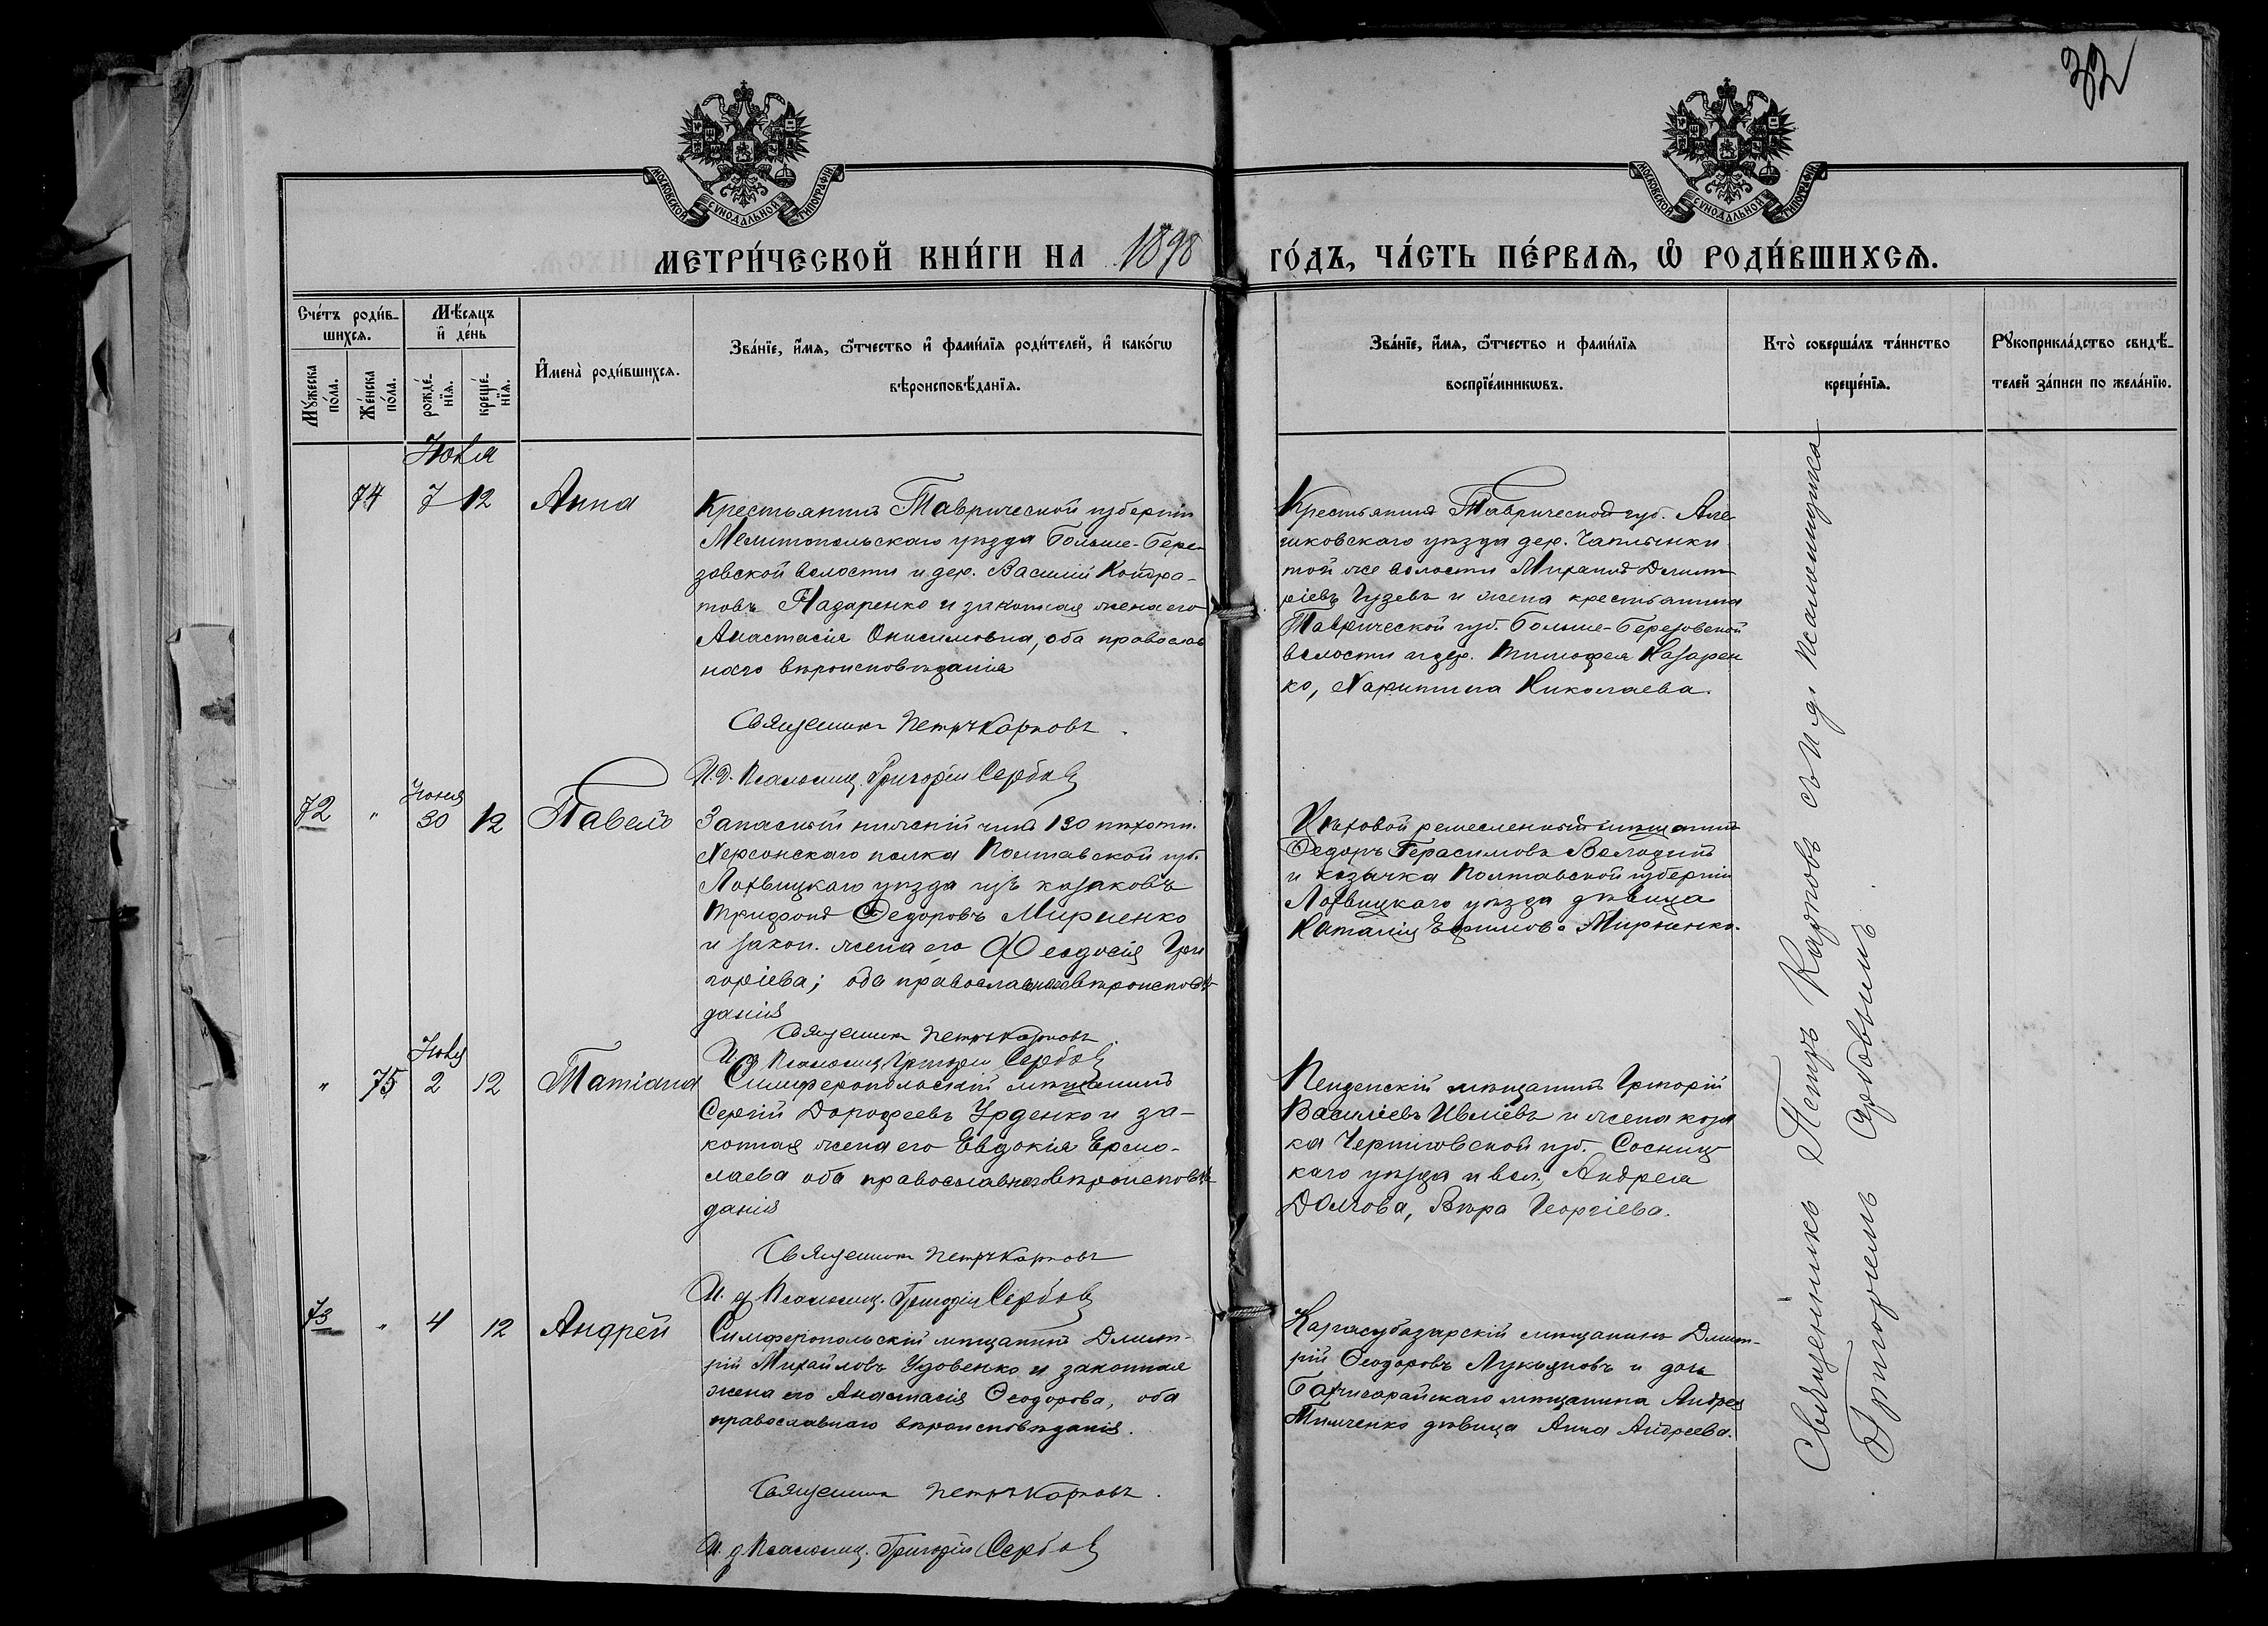 32
МОСКОВСКОЙ СѴНОДАЛЬНОЙ ТИПОГРАФІИ
МОСКОВСКОЙ СѴНОДАЛЬНОЙ ТИПОГРАФІИ
МЕТРИ́ЧЕСКОЙ КНИ́ГИ НА 1898
ГО́ДЪ, ЧА́СТЬ ПЕ́РВАѦ, Ѡ҆ РОДИ́ВШИХСѦ.
Сче́тъ роди́в-
шихсѧ.
Мѣ́сѧцъ
и҆ де́нь
Мꙋ́жеска
по́ла.
Же́нска
по́ла.
рожде́-
нїѧ.
креще́-
нїѧ.
И҆мена̀ роди́вшихсѧ.
Зва́нїе, и҆́мѧ, ѻ҆́тчество и҆ фами́лїѧ роди́телей, и҆ како́гѡ
вѣроисповѣ́данїѧ.
Зва́нїе, и҆́мѧ, ѻ҆́тчество и фами́лїѧ
воспрїе́мникѡвъ.
Кто̀ соверша́лъ та́инство
креще́нїѧ.
Рꙋкоприкла́дство свидѣ́-
телей за́писи по жела́нїю.
Іюля
74 7 12 Анна
Крестьянинъ Таврической губерніи
Мелитопольскаго уѣзда Больше-Бере-
зовской волости и дер. Василій Кондра-
товъ Назаренко и законная жена его
Анастасія Онисимовна, оба православ
наго вѣроисповѣданія
Священникъ Петръ Карповъ.
И. д. Псаломщ. Григорій Сербовъ
Крестьянинъ Таврической губ. Але
шковскаго уѣзда дер. Чаплынки
той же волости Михаилъ Димит
ріевъ Гузевъ и жена крестьянина
Таврической губ. Больше-Березовской
волости и дер. Тимофея Назарен
ко, Харитина Николаева.
72 " Іюня 30 12 Павелъ
Запасный нижній чинъ 130 пѣхотн.
Херсонскаго полка Полтавской губ.
Лохвицкаго уѣзда изъ казаковъ
Трифонъ Федоровъ Мирненко
и закон. жена его Феодосія Гри
горіева; оба православнаго вѣроисповѣ-
данія
Священникъ Петръ Карповъ.
И д Псаломщ. Григорій Сербовъ
Цѣховой ремесленный мѣщанинъ
Федоръ Герасимовъ Володинъ
и казачка Полтавской губерніи
Лохвицкаго уѣзда дѣвица
Наталія Ефимова Мирненко.
" 75 Іюля 2 12 Татіана
Симферопольскій мѣщанинъ
Сергій Дорофеевъ Урденко и за-
конная жена его Евдокія Ермо-
лаева оба православнаго вѣроисповѣ-
данія
Священникъ Петръ Карповъ
И. д Псаломщ. Григорій Сербовъ
Пензенскій мѣщанинъ Григорій
Василіевъ Ивліевъ и жена коза
ка Черниговской губ. Сосниц
каго уѣзда и вол. Андрея
Долгова, Вѣра Георгіева.
73 " 4 12 Андрей
Симферопольскій мѣщанинъ Димит-
рій Михайловъ Удовенко и законная
жена его Анастасія Ѳеодорова, оба
православнаго вѣроисповѣданія.
Священникъ Петръ Карповъ.
И. д Псаломщ. Григорій Сербовъ
Карасубазарскій мѣщанинъ Димит-
рій Ѳеодоровъ Лукьяновъ и дочь
Бахчисарайскаго мѣщанина Андрея
Тимченко дѣвица Анна Андреева.
Священникъ Петръ Карповъ съ и. д. псаломщика
Григоріемъ Сербовымъ.